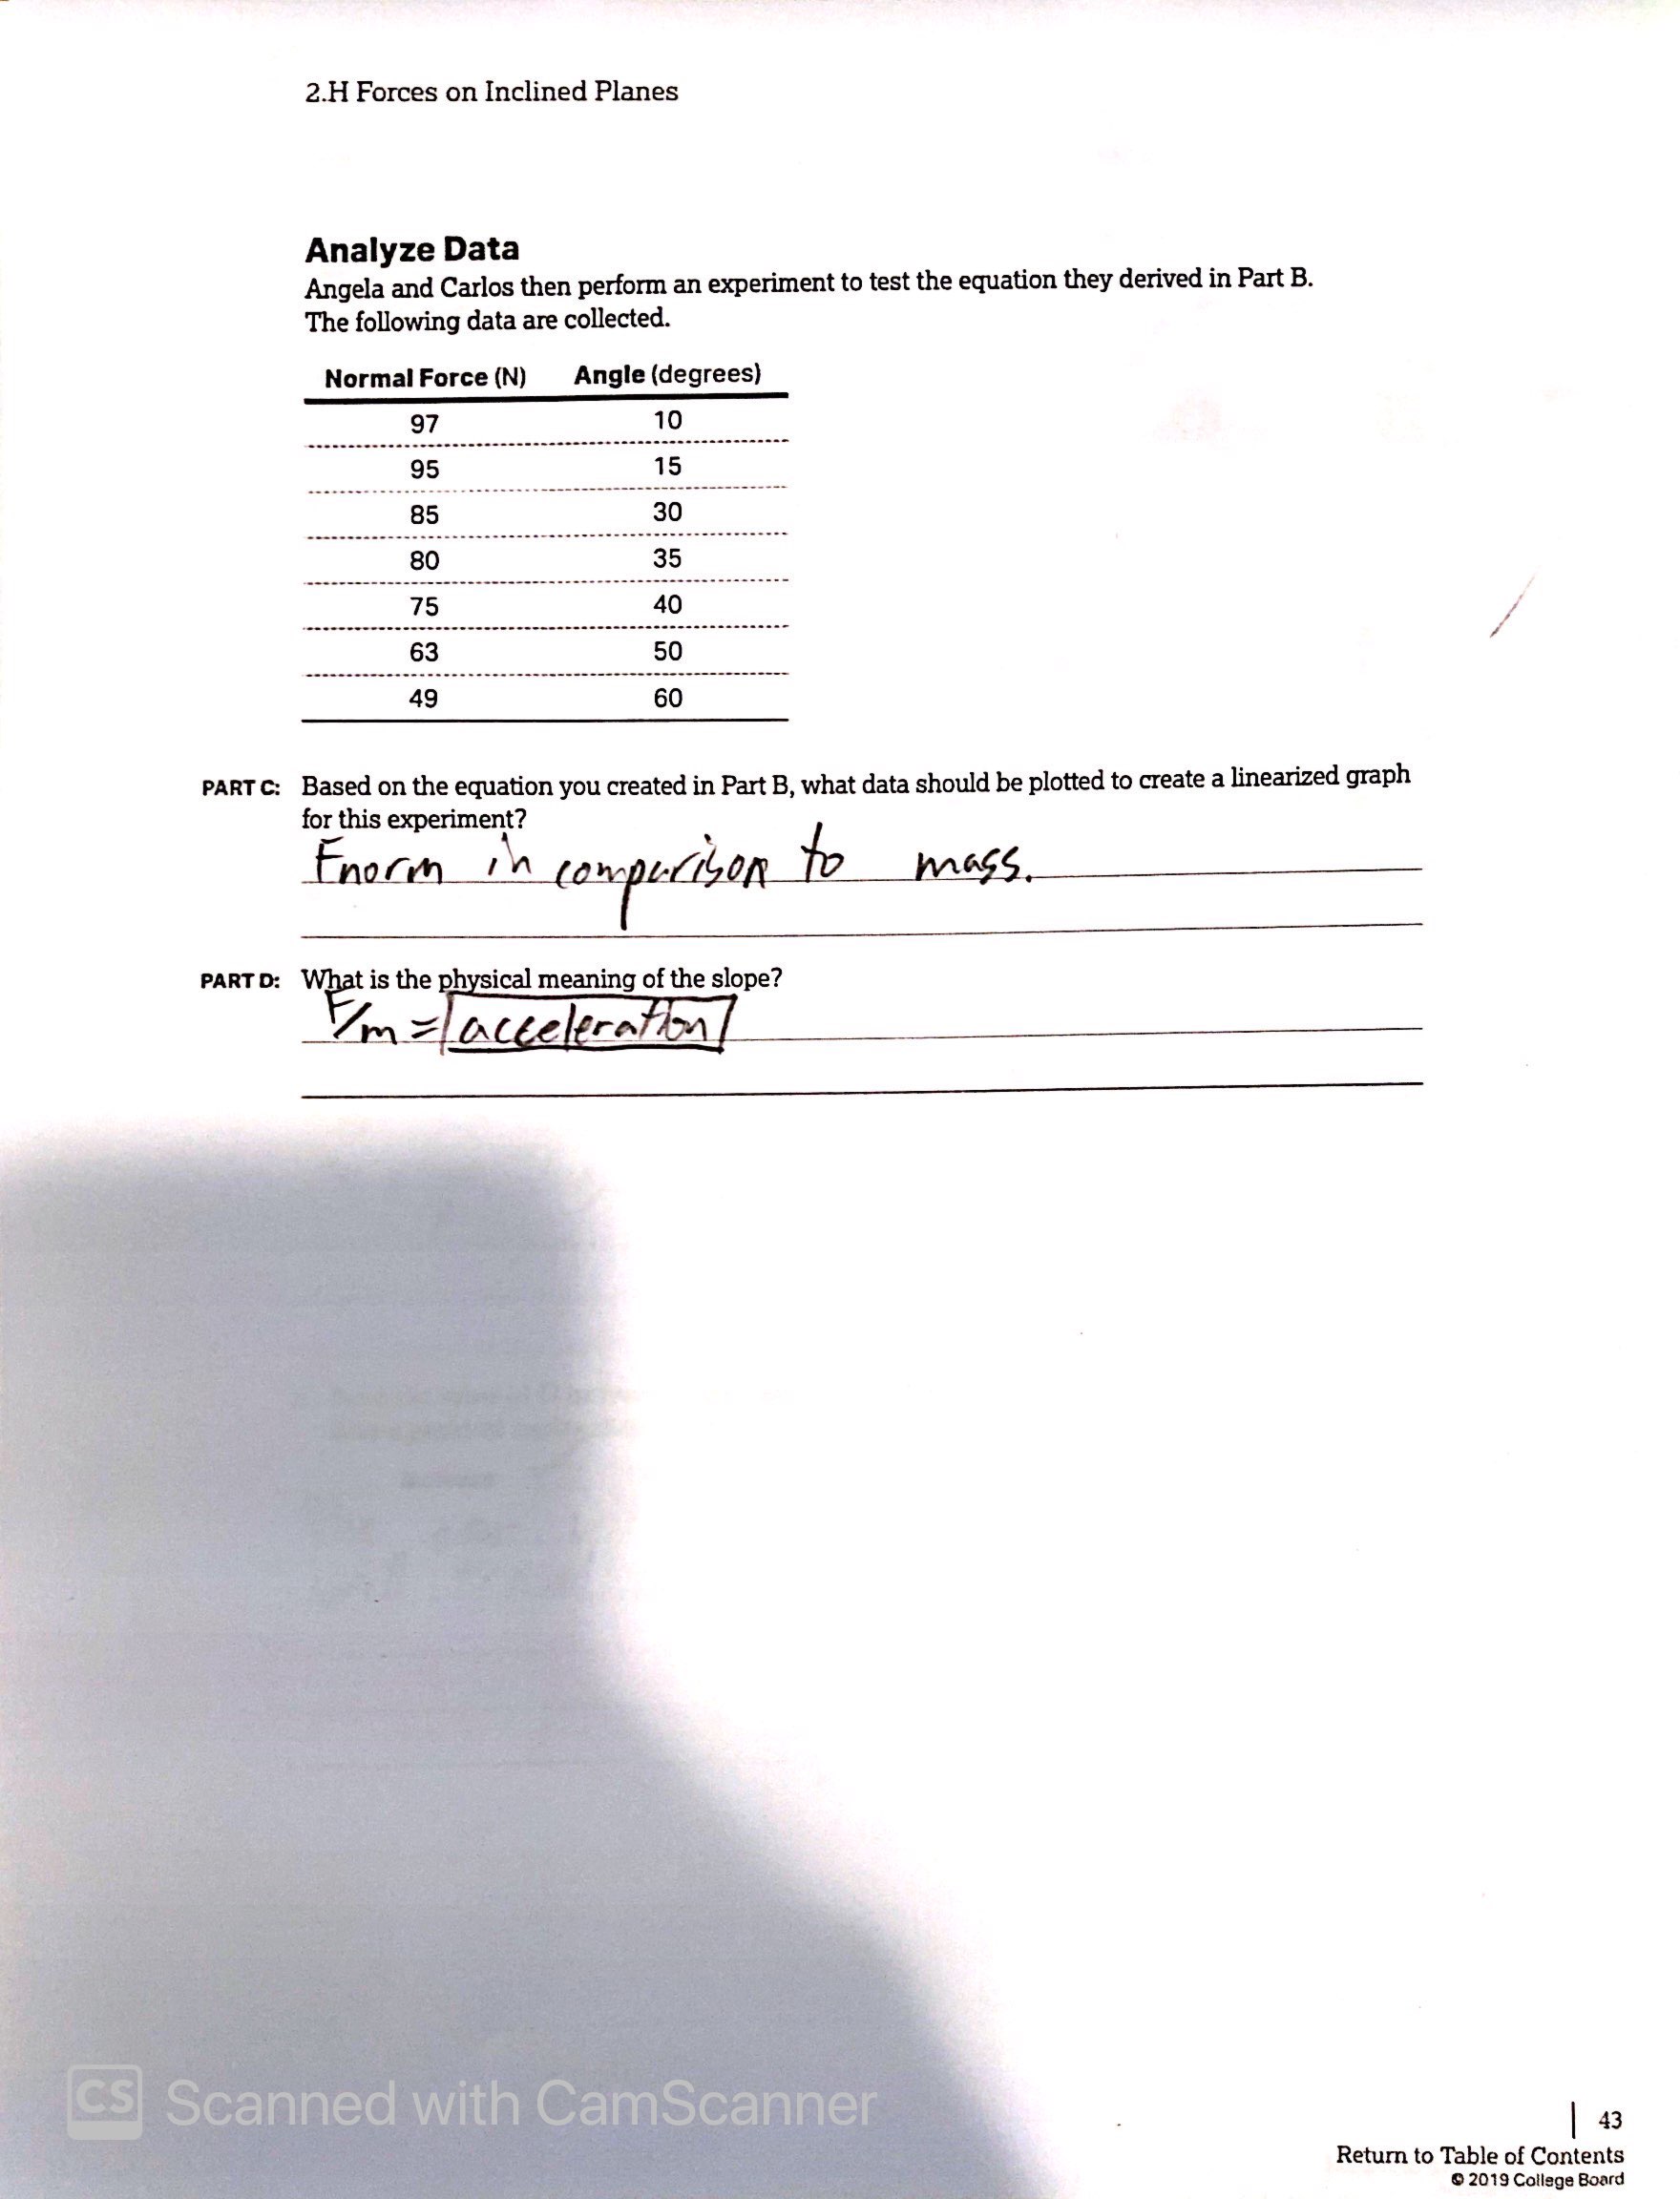 2.H Forces on Inclined Planes
Analyze Data
Angela and Carlos then perform an experiment to test the equation they derived in Part B.
The following data are collected.
Normal Force (N) Angle (degrees)
97 10
95 15
85 30
80 35
75 40
63 50
49 60
PART C: Based on the equation you created in Part B, what data should be plotted to create a linearized graph
for this experiment?
Fnorm in comparison to mass.
PART D: What is the physical meaning of the slope?
F/m = acceleration
CS Scanned with CamScanner
43
Return to Table of Contents
© 2019 College Board